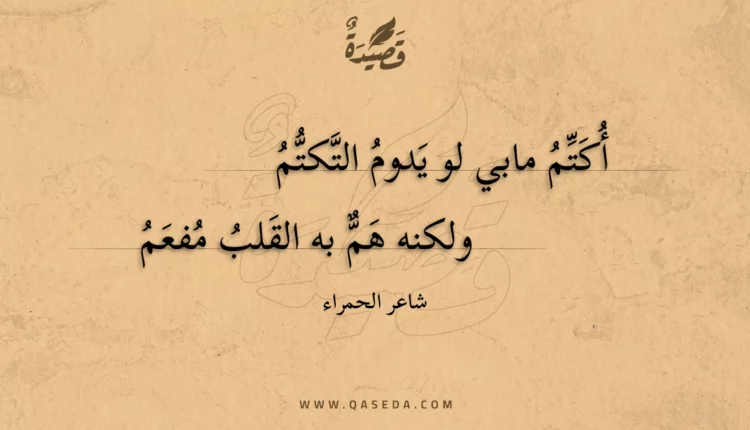 قَصِيْدَةٌ
أُكَتِّمُ مابي لو يَدومُ التَّكتُّمُ
ولكنه هَمٌّ به القَلبُ مُفعَمُ
شاعر الحمراء
WWW.QASEDA.COM